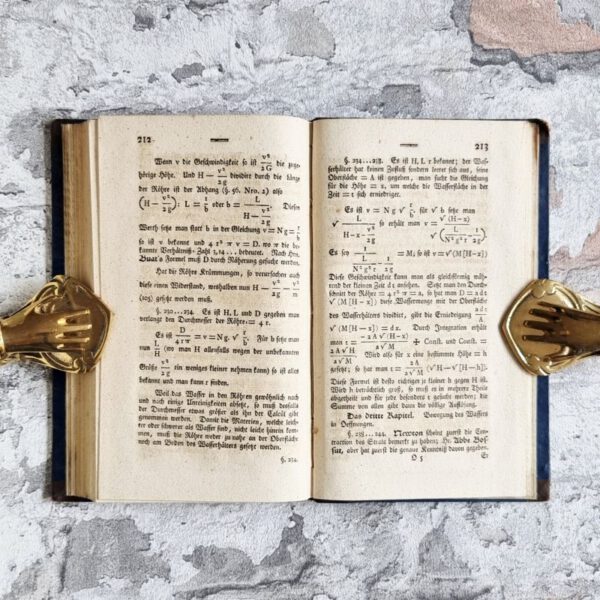 212
Wenn v die Geschwindigkeit so ist v²/2G die zuge-
hörige Höhe. Und H — v²/2g dividirt durch die Länge
der Röhre ist der Abhang (§. 56. Nro. 2) also
(H — v²/2g) : L = 1/b oder b = L/(H — v²/2g). Diesen
Werth setze man statt b in der Gleichung v = N g √ r/b
so ist v bekannt und 4 r² π v = D, wo π die be-
kannte Verhältniß-Zahl 3,14... bedeutet. Nach Hrn.
Buat's Formel muß D durch Näherung gesucht werden.
Hat die Röhre Krümmungen, so verursachen auch
diese einen Widerstand, weshalben nun H — v²/2g — v²/m
(203) gesetzt werden muß.
§. 210...234. Es ist H, L und D gegeben man
verlangt den Durchmesser der Röhre = 4 r.
Es ist D/4 r π = v = N g √ r/b. Für b setze man
nun L/H (wo man H allenfalls wegen der unbekannten
Größe v²/2g ein weniges kleiner nehmen kann) so ist alles
bekannt und man kann r finden.
Weil das Wasser in den Röhren gewöhnlich nach
und nach einige Unreinigkeiten absetzt, so muß deshalb
der Durchmesser etwas größer als ihn der Calcül gibt
genommen werden. Damit die Materien, welche leich-
ter oder schwerer als Wasser sind, nicht leicht hinein kom-
men, muß die Röhre weder zu nahe an der Oberfläche
noch am Boden des Wasserhälters gesetzt werden.
§. 234.
213
§. 234...238. Es ist H, L r bekannt; der Was-
serhälter hat keinen Zufluß sondern leeret sich aus, seine
Oberfläche = A ist gegeben, man sucht die Gleichung
für die Höhe = x, um welche die Wasserfläche in der
Zeit = t sich erniedriget.
Es ist v = N g √ r/b, für √ b setze man
√ L/(H — x — v²/2g) so erhält man v = √ (H — x)/√ (L/(N² g² r) — 1/2g)
Es sey 1/(L/(N² g² r) — 1/2g) = M; so ist v = √ (M [H — x])
Diese Geschwindigkeit kann man als gleichförmig wäh-
rend der kleinen Zeit d t ansehen. Setzt man den Durch-
schnitt der Röhre = 4 r² π = a, so hat man D = a d t
√ (M [H — x]) diese Wassermenge mit der Oberfläche
des Wasserhälters dividirt, gibt die Erniedrigung a d t/A
√ (M [H — x]) = d x. Durch Integration erhält
man t = — 2 A √ (H — x)/a √ M + Const. und Const. =
2 A √ H/a √ M. Wird also für x eine bestimmte Höhe = h
gesetzt; so hat man t = 2 A/a √ M (√ H — √ [H — h]).
Diese Formel ist desto richtiger je kleiner h gegen H ist.
Wird h beträchtlich groß, so muß es in mehrere Theile
abgetheilt und für jede besonders t gesucht werden; die
Summe von allen gibt dann die völlige Ausfließung.
Das dritte Kapitel. Bewegung des Wassers
in Oeffnungen.
§. 238...244. Newton scheint zuerst die Con-
traction des Strals bemerkt zu haben; Hr. Abbé Bos-
sut, aber hat zuerst die genaue Kenntniß davon gegeben.
O 5
Er